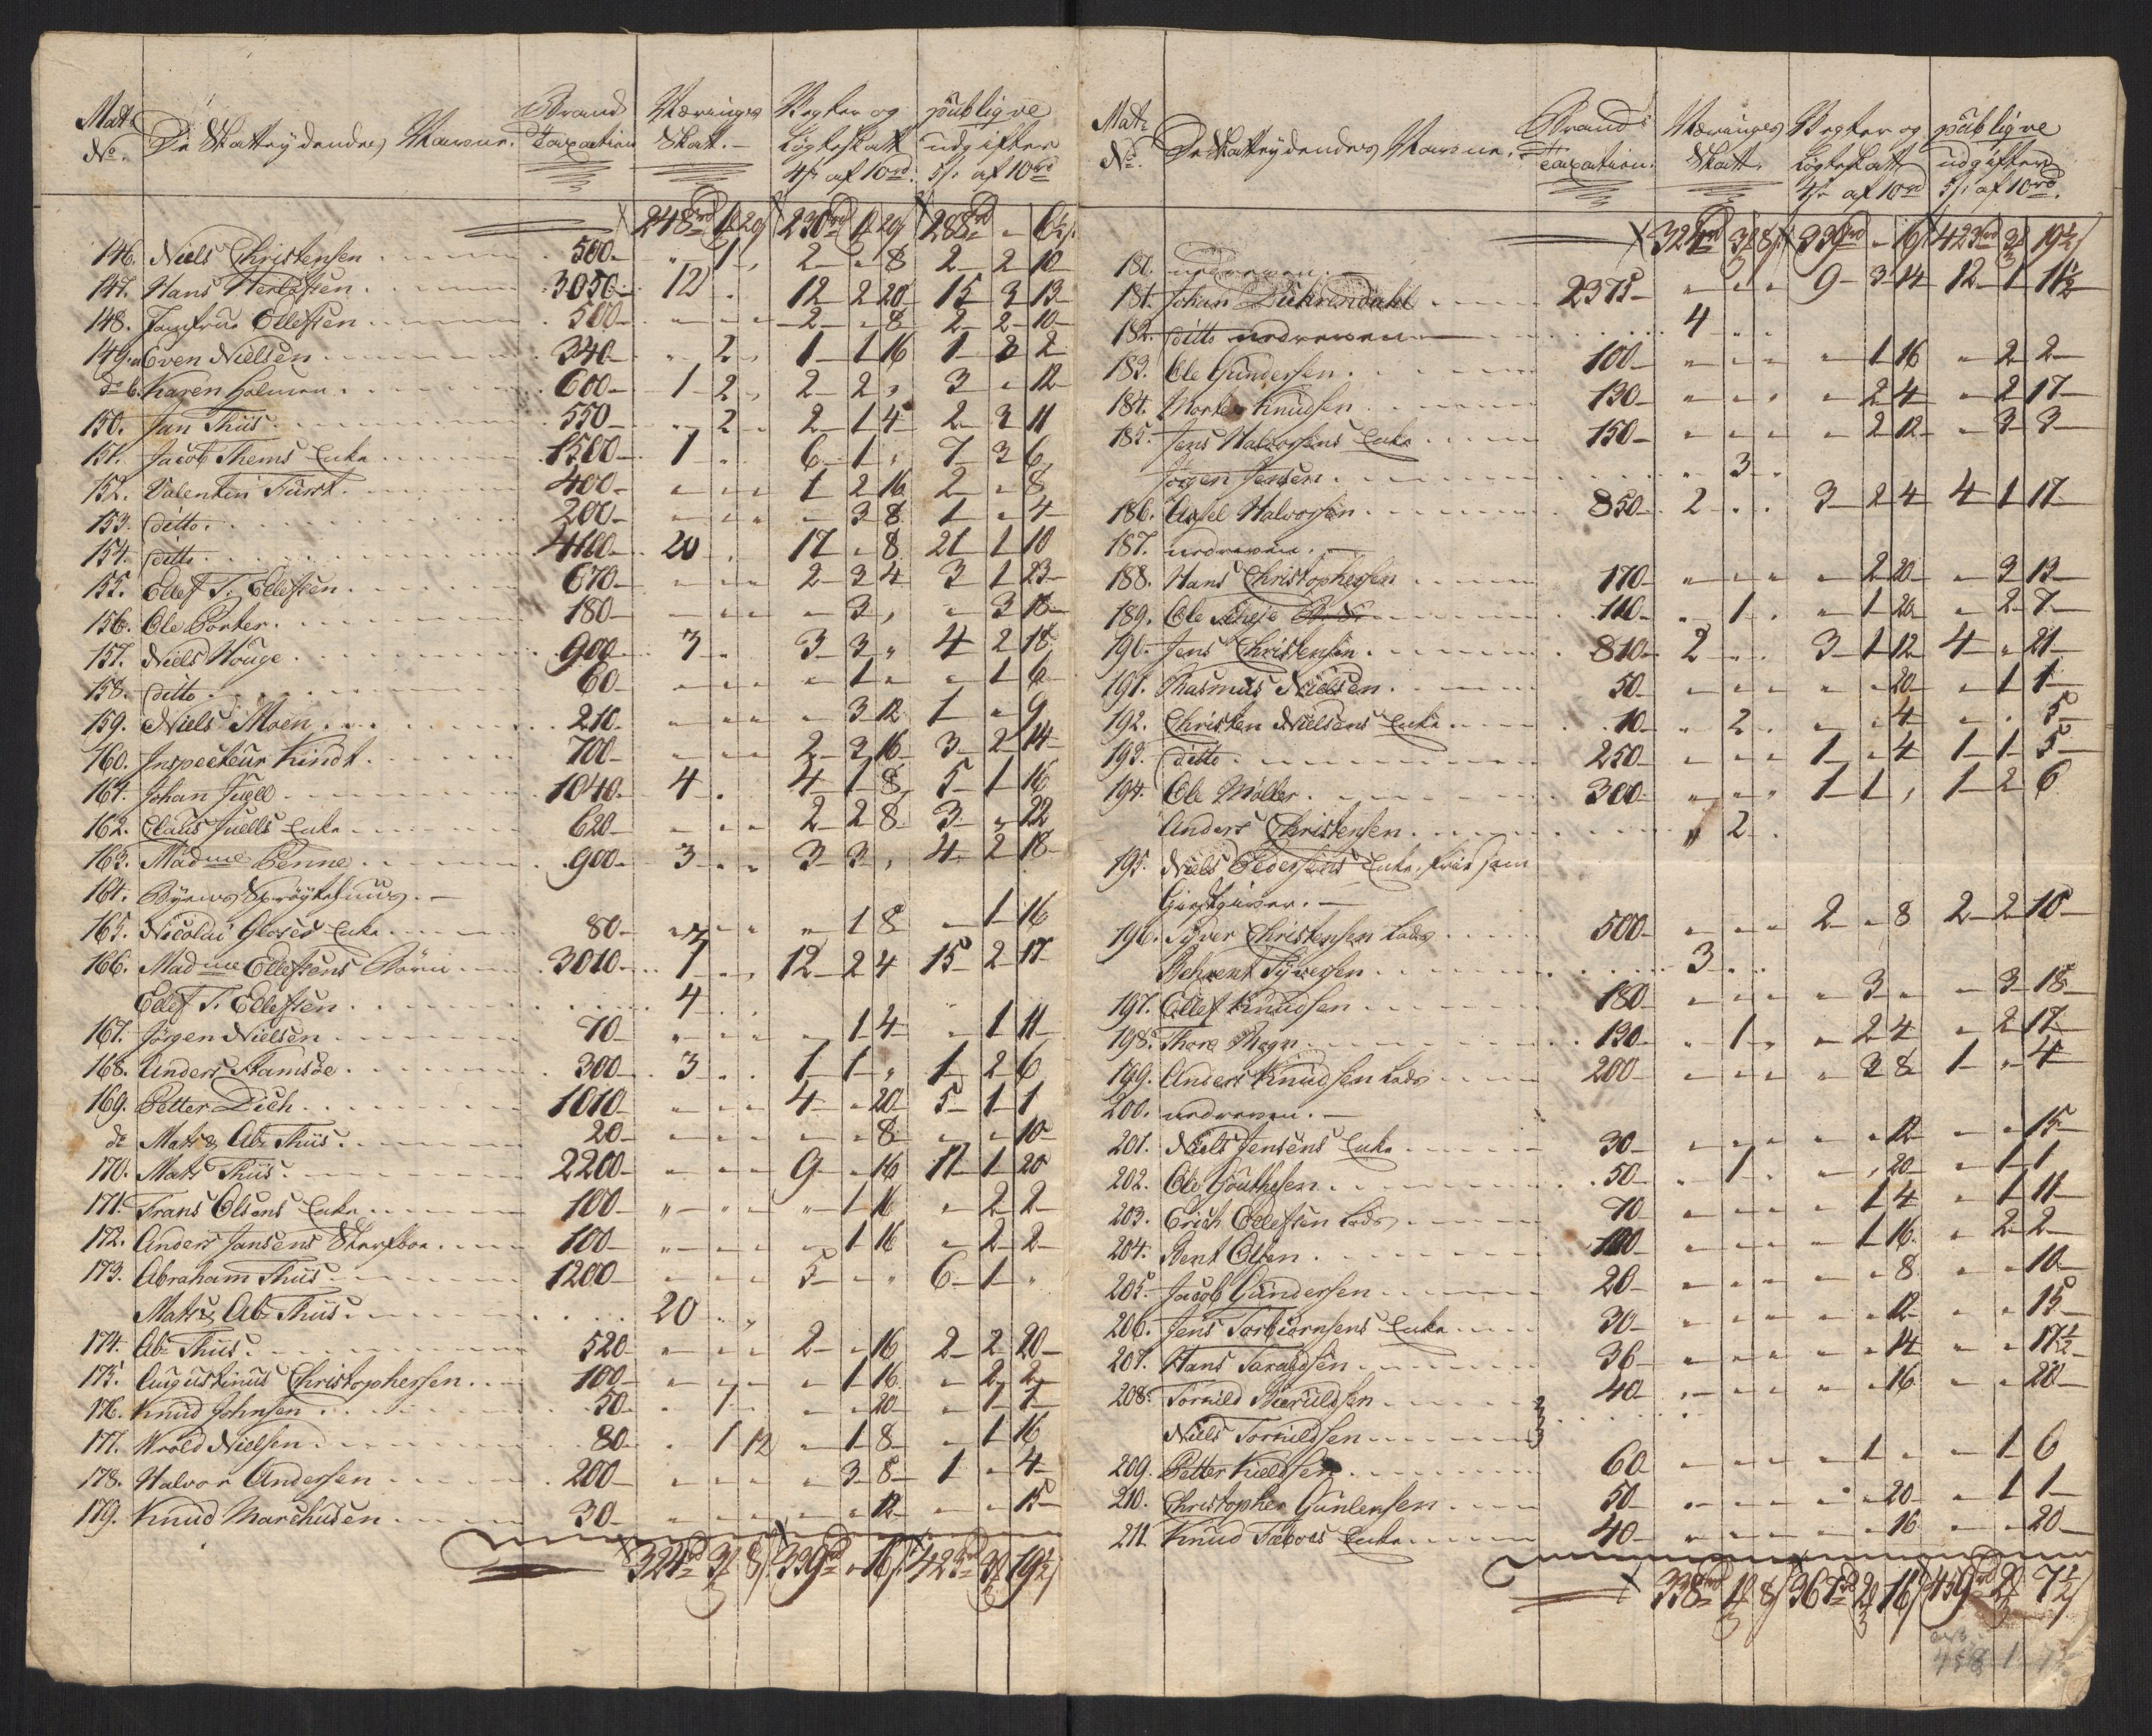 Mats No. | De Skatteydendes Navne. | Brand Taxation | Nærings Skatt. | Vegter og Løgteskatt 4 s. af 10 rd. | publiqve udgifter 5 s. af 10 rd.
248 rd 1 20 | 230 rd 1 20 | 288 rd " 6½
146. Niels Christensen 500 | " 1 " | 2 " 8 | 2 2 10
147. Hans Herlofsen 3050 | 12 " | 12 2 20 | 15 3 13
148. Jomfrue Ellefsen 500 | " " " | 2 " 8 | 2 2 10
149.a Even Nielsen 340 | " 2 " | 1 1 16 | 1 3 2
do b. Karen Holmen 600 | 1 2 " | 2 2 " | 3 " 12
150. Jan Thiis 550 | " 2 " | 2 1 4 | 2 3 11
151. Jacob Thems Enke 1500 | 1 " | 6 1 " | 7 3 6
152. Valentin Fürst 400 | " " " | 1 2 16 | 2 " 8
153. ditto 200 | " " " | " 3 8 | 1 " 4
154. ditto 4100 | 20 " | 17 " 8 | 21 1 10
155. Ellef T. Ellefsen 670 | " " " | 2 3 4 | 3 1 23
156. Ole Porter 180 | " " " | " 3 " | " 3 18
157. Niels Houge 900 | 3 " | 3 3 " | 4 2 18
158. ditto 60 | " " " | " 1 " | " 1 6
159. Niels Moen 210 | " " " | " 3 12 | 1 " 9
160. Inspecteur Kindt 700 | " " " | 2 3 16 | 3 2 14
161. Johan Juell 1040 | 4 " | 4 1 8 | 5 1 16
162. Claus Juells Enke 620 | " " " | 2 2 8 | 3 " 22
163. Madme Penne 900 | 3 " " | 3 3 " | 4 2 18
164. Byens Sprøytehuus.
165. Nicolai Gloses Enke 80 | " " " | " 1 8 | " 1 16
166. Madme Ellefsens Børn 3010 | 7 " " | 12 2 4 | 15 2 17
Ellef T. Ellefsen 4
167. Jørgen Nielsen 70 | " " " | " 1 4 | " 1 11
168. Anders Famsøe 300 | 3 " " | 1 1 " | 1 2 6
169. Petter Dich 1010 | " " " | 4 " 20 | 5 1 1
do Mats & Ab: Thiis 20 | " " " | " " 8 | " " 10
170. Mats Thiis 2200 | " " " | 9 " 16 | 11 1 20
171. Frans Olsens Enke 100 | " " " | " 1 16 | " 2 2
172. Anders Jansens Sterfboe 100 | " " " | " 1 16 | " 2 2
173. Abraham Thiis 1200 | " " " | 5 " " | 6 1 "
Mats & Ab: Thiis 20 " "
174. Ab: Thiis 520 | " " " | 2 " 16 | 2 2 20
175. Augustinus Christophersen 100 | " " " | " 1 16 | " 2 2
176. Knud Johnsen 50 | " 1 " | " " 20 | " 1 1
177. Wrold Nielsen 80 | " 1 12 | " 1 8 | " 1 16
178. Halvor Andersen 200 | " " " | " 3 8 | 1 " 4
179. Knud Marchusen 30 | " " " | " " 12 | " " 15
324 rd 3 8 | 339 rd " 16 | 423 rd 3 19½
Mats No. | De Skatteydendes Navne. | Brand Taxation. | Nærings Skatt. | Vegter og Løgteskatt 4 s. af 10 rd | publiqve udgifter 5 s. af 10 rd.
324 rd 3 8 | 339 rd " 16 | 423 rd 3 19½
180. nedreven.
181. Johan Dührendahl 2375 | " " " | 9 3 14 | 12 1 11½
182. ditto nedreven 4 " "
183. Ole Gundersen 100 | " " " | " 1 16 | " 2 2
184. Morten Knudsen 130 | " " " | " 2 4 | " 2 17
185. Jens Halvorsens Enke 150 | " " " | " 2 12 | " 3 3
Jørgen Jensen " 3 "
186. Axsel Halvorsen 850 | 2 " " | 3 2 4 | 4 1 17
187. nedreven.
188. Hans Christophersen 170 | " " " | " 2 20 | " 3 13
189. Ole 110 | " 1 " | " 1 20 | " 2 7
190. Jens Christensen 810 | 2 " " | 3 1 12 | 4 " 21
191. Rasmus Nielsen 50 | " " " | " " 20 | " 1 1
192. Christen Nielsens Enke 10 | " 2 " | " " 4 | " " 5
193. ditto 250 | " " " | 1 " 4 | 1 1 5
194. Ole Møller 300 | " " " | 1 1 " | 1 2 6
Anders Christensen " 2 "
195. Niels Pedersens Enke, frie som
Giestgiver.
196. Syver Christensen Lods 500 | " " " | 2 " 8 | 2 2 10
Behrent Syversen 3 " "
197. Ellef Knudsen 180 | " " " | " 3 " | " 3 18
198. Thore Megn 130 | " 1 " | " 2 4 | " 2 17
199. Anders Knudsen Lods 200 | " " " | " 3 8 | 1 " 4
200. nedreven.
201. Niels Jensens Enke 30 | " " " | " " 12 | " " 15
202. Ole Gouthesen 50 | " 1 " | " " 20 | " 1 1
203. Erich Ellefsen Lods 70 | " " " | " 1 4 | " 1 11
204. Bent Olsen 100 | " " " | " 1 16 | " 2 2
205. Jacob Gundersen 20 | " " " | " " 8 | " " 10
206. Jens Torbiørnsens Enke 30 | " " " | " " 12 | " " 15
207. Hans Taraldsen 36 | " " " | " " 14 | " " 17½
208. Torkild Bieruldsen 40 | " " " | " " 16 | " " 20
Niels Torkildsen
209. Petter Kieldsen 60 | " " " | " 1 " | " 1 6
210. Christopher Gunlersen 50 | " " " | " " 20 | " 1 1
211. Knud Tabors Enke 40 | " " " | " " 16 | " " 20
338 rd 1 8 | 367 rd 2 16 | 459 rd 2 7½
458 1 7½